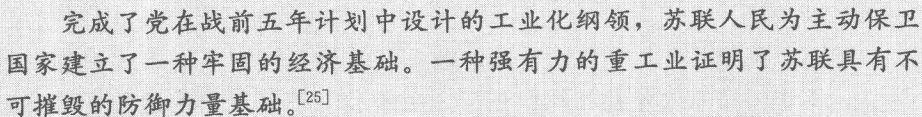 完成了党在战前五年计划中设计的工业化纲领，苏联人民为主动保卫
国家建立了一种牢固的经济基础。一种强有力的重工业证明了苏联具有不
可摧毁的防御力量基础。[25]